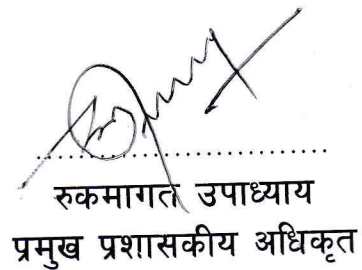 रुकमागत उपाध्याय
प्रमुख प्रशासकीय अधिकृत